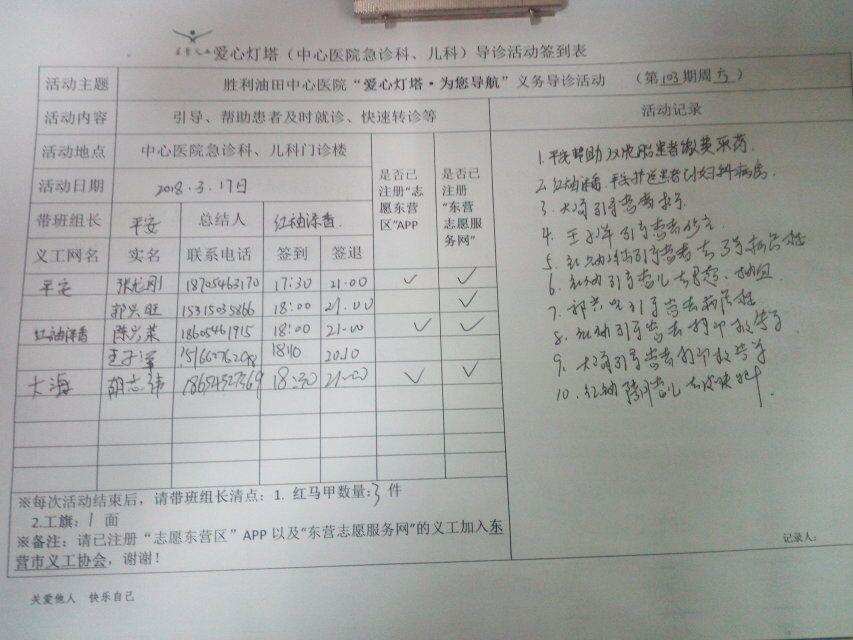 爱心灯塔（中心医院急诊科、儿科）导诊活动签到表
活动主题 胜利油田中心医院“爱心灯塔·为您导航”义务导诊活动 （第103期周六）
活动内容 引导、帮助患者及时就诊、快速转诊等 活动记录
活动地点 中心医院急诊科、儿科门诊楼
是否已注册“志愿东营区”APP
是否已注册“东营志愿服务网”
活动日期 2018.3.17日
带班组长 平安 总结人 红袖添香
义工网名 实名 联系电话 签到 签退
平安 张龙刚 18705463170 17:30 21.00 ✓ ✓
郭兴旺 15315035866 18:00 21.00 ✓
红袖添香 陈兴荣 18605461915 18:00 21-00 ✓ ✓
王子洋 18:10 20.10
大海 胡志伟 18:30 21-00 ✓ ✓
1.平安帮助 患者缴费取药.
2.红袖添香.平安护送患者到妇科病房.
3.大海引导患者
4.王子洋引导患者
5.红袖引导患者去
6.红袖引导患儿去
7.郭兴旺引导患者去病房楼
8.红袖引导患者打印报告单
9.大海引导患者打印报告单
10.红袖 患儿去
※每次活动结束后，请带班组长清点：1. 红马甲数量：3 件
2.工旗：1 面
※备注：请已注册“志愿东营区”APP 以及“东营志愿服务网”的义工加入东
营市义工协会，谢谢！
记录人：
关爱他人 快乐自己